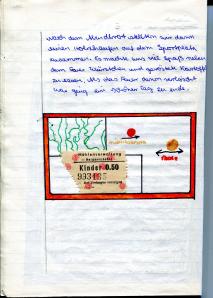 Nach dem Abendbrot stellten wir dann
einen Holzhaufen auf dem Sportplatz
zusammen. Es machte uns viel Spaß neben
dem Feuer Würstchen und geröstete Kartoffeln
zu essen. Als das Feuer dann verlöscht
war ging ein schöner Tag zu ende.
Höhlenverwaltung
Kinder 0.50